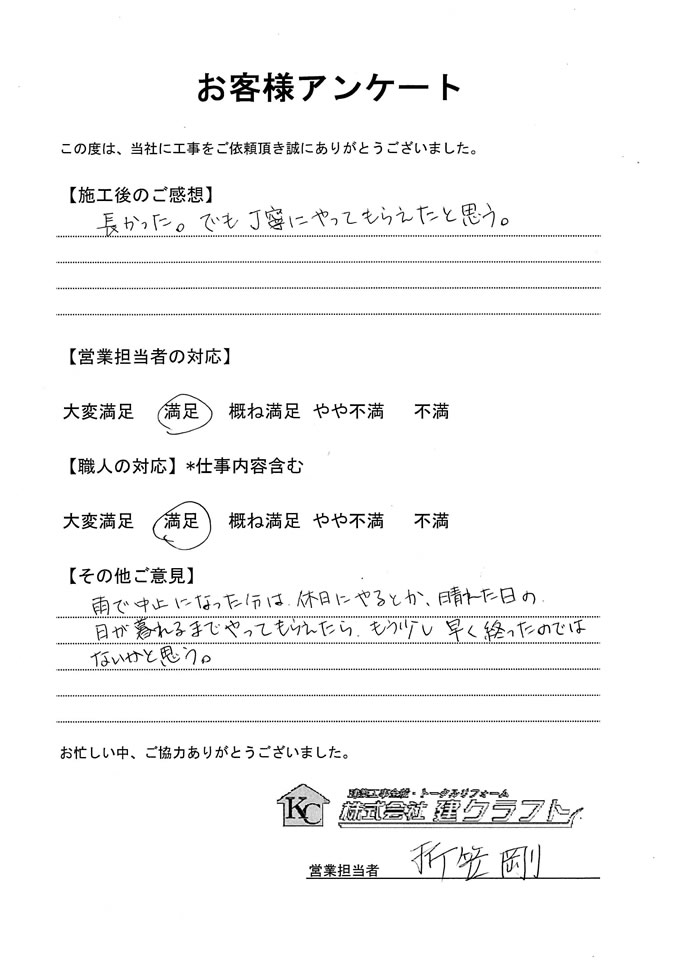 お客様アンケート
この度は、当社に工事をご依頼頂き誠にありがとうございました。
【施工後のご感想】
長かった。でも丁寧にやってもらえたと思う。
【営業担当者の対応】
大変満足 満足 概ね満足 やや不満 不満
【職人の対応】*仕事内容含む
大変満足 満足 概ね満足 やや不満 不満
【その他ご意見】
雨で中止になった分は、休日にやるとか、晴れた日の
日が暮れるまでやってもらえたら、もう少し早く終ったのでは
ないかと思う。
お忙しい中、ご協力ありがとうございました。
KC
建築工事全般・トータルリフォーム
株式会社 建クラフト
営業担当者 折笠剛